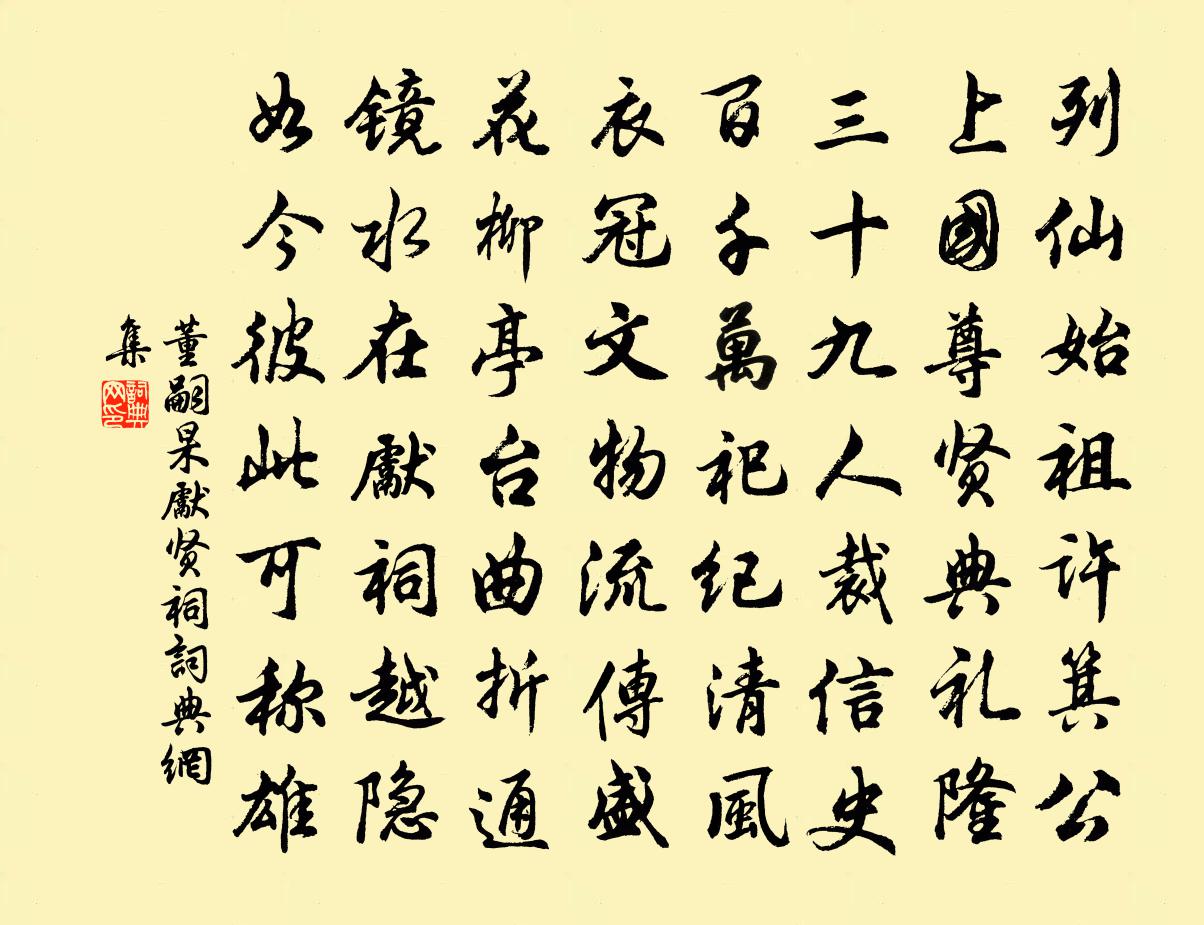 列仙始祖许箕公
上國尊贤典礼隆
三十九人裁信史
百千萬祀纪清風
衣冠文物流傳盛
花柳亭台曲折通
镜水在獻祠越隐
如今彼此可称雄
董嗣杲獻贤祠詞典網
集
詞典
网印